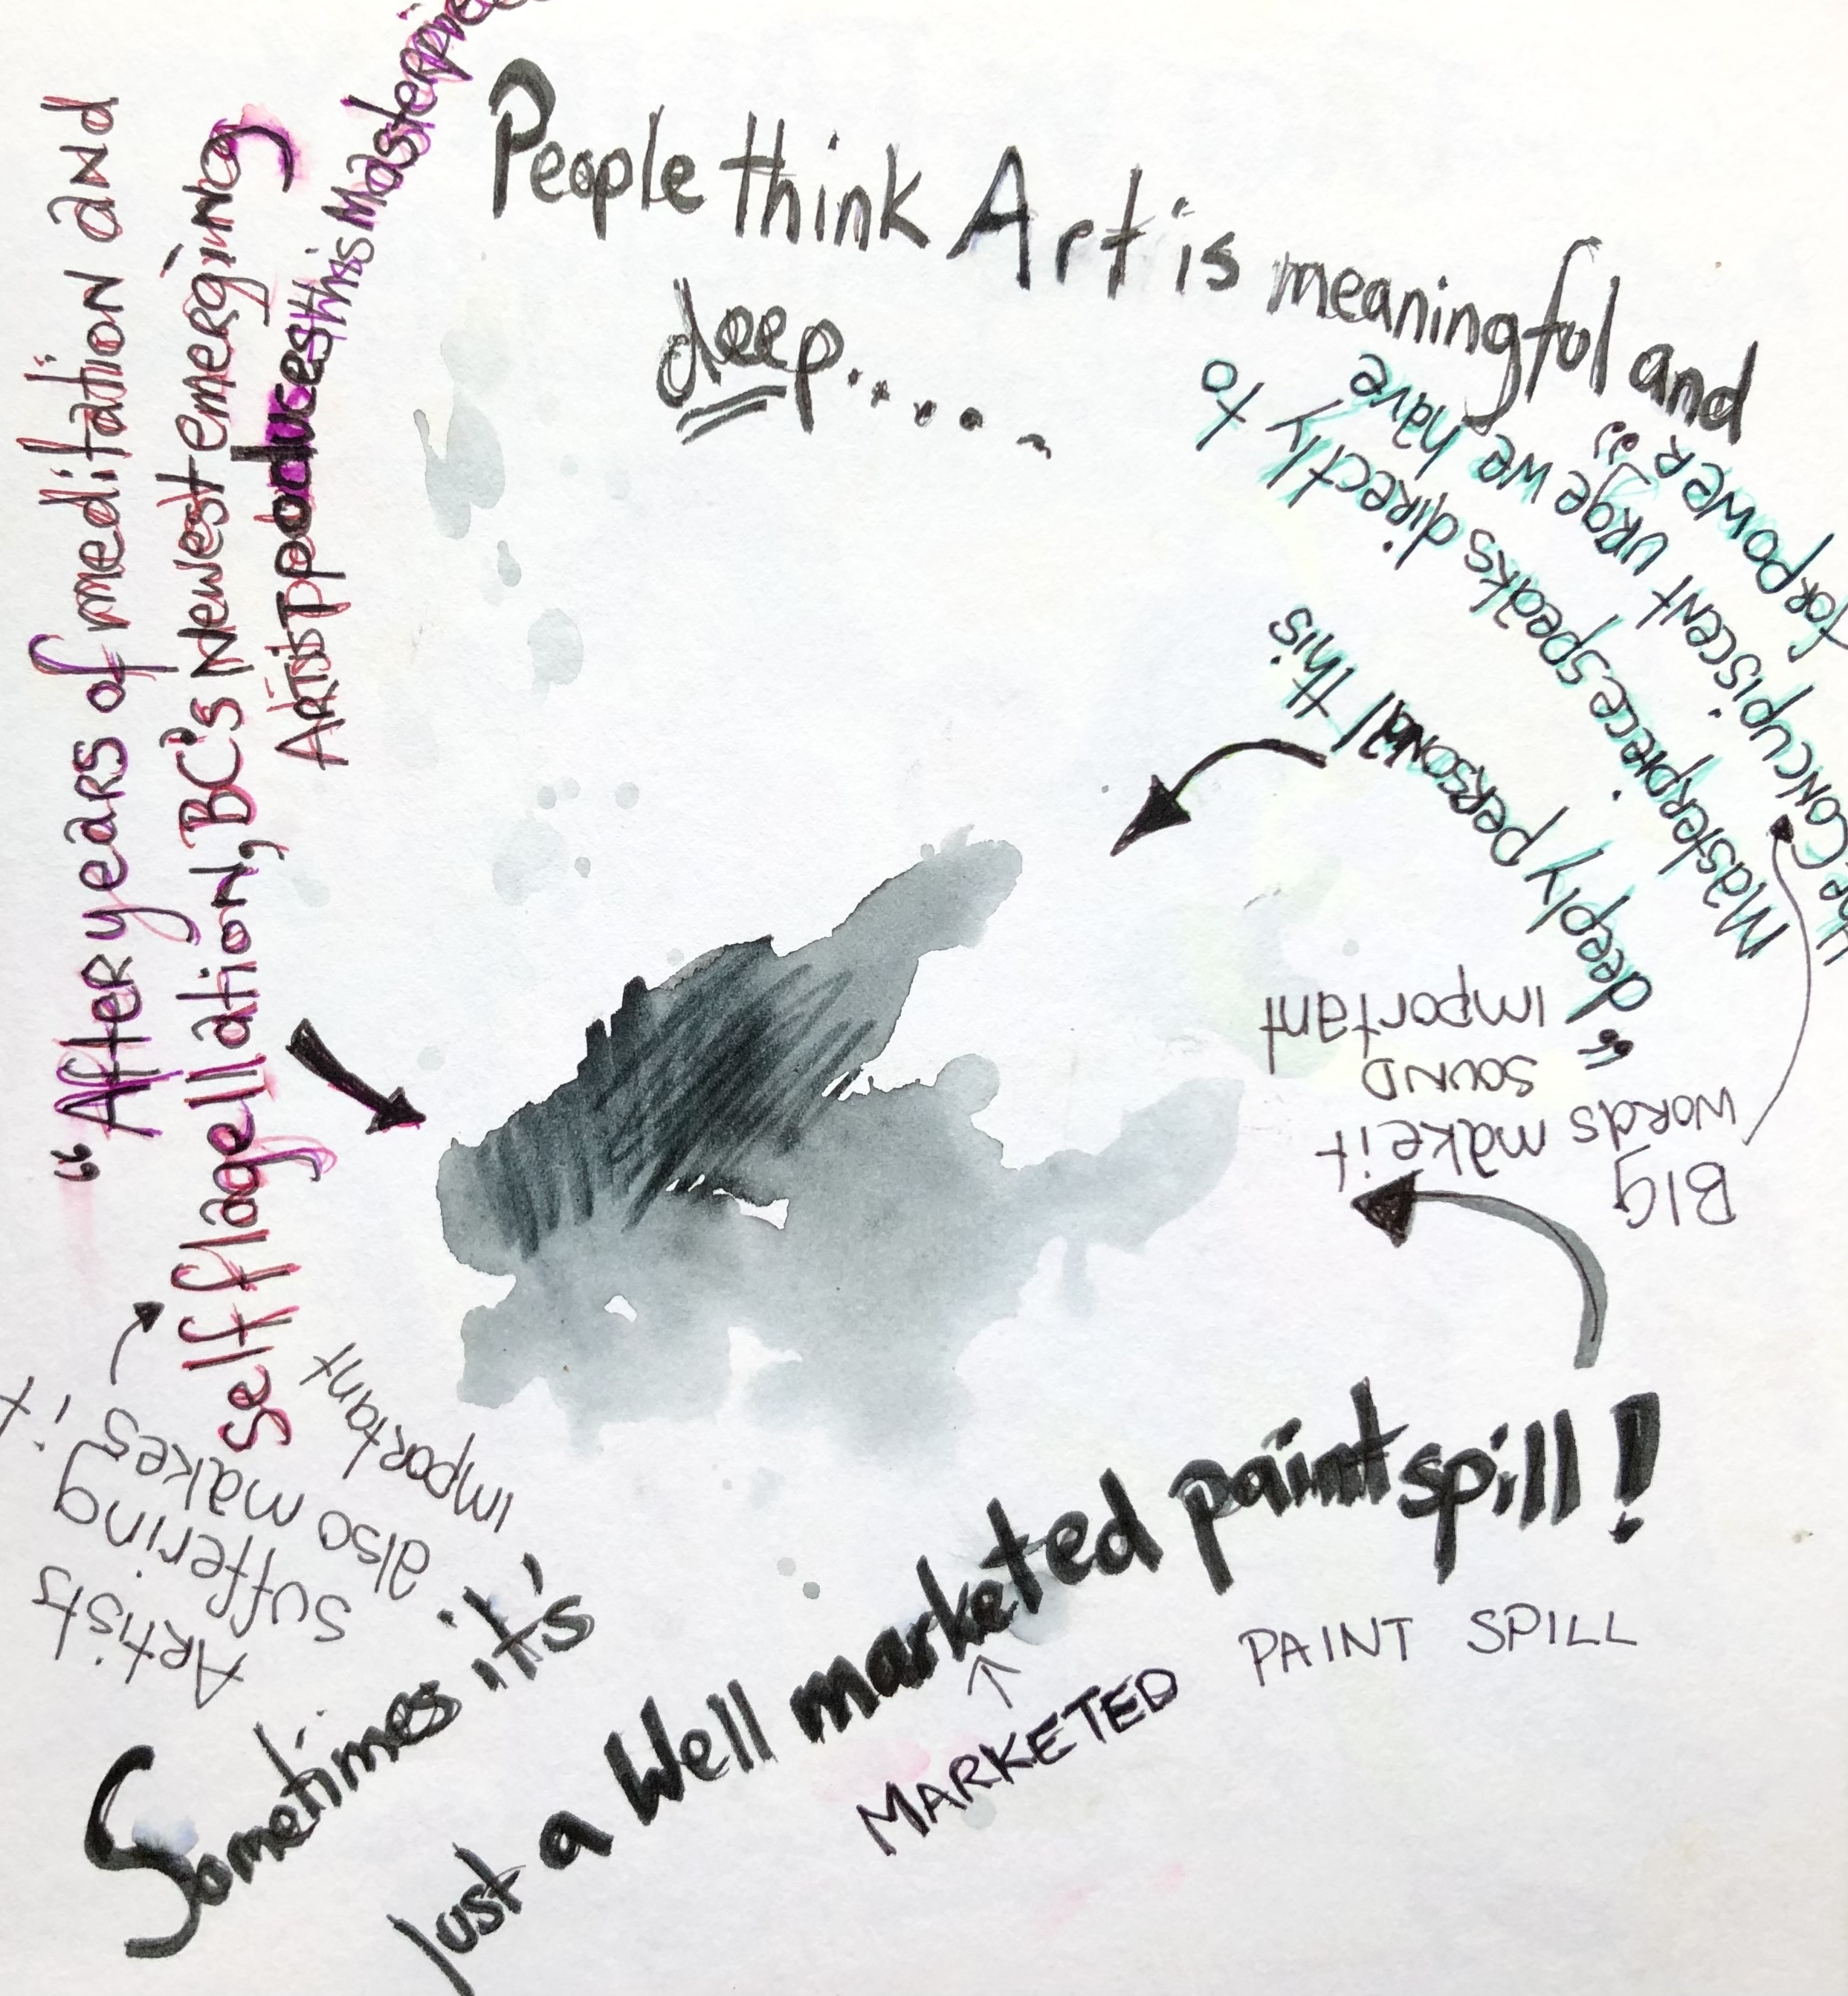 People think Art is meaningful and
deep.....
"After years of meditation and
self flagellation, BC's Newest emerging
Artist poduces this Masterpiece
Artists
suffering
also makes it
important
"deeply personal this
Masterpiece speaks directly to
the Concupiscent urge we have
for power"
BIG
words make it
sound
important
Sometimes it's
Just a Well marketed paint spill!
MARKETED PAINT SPILL